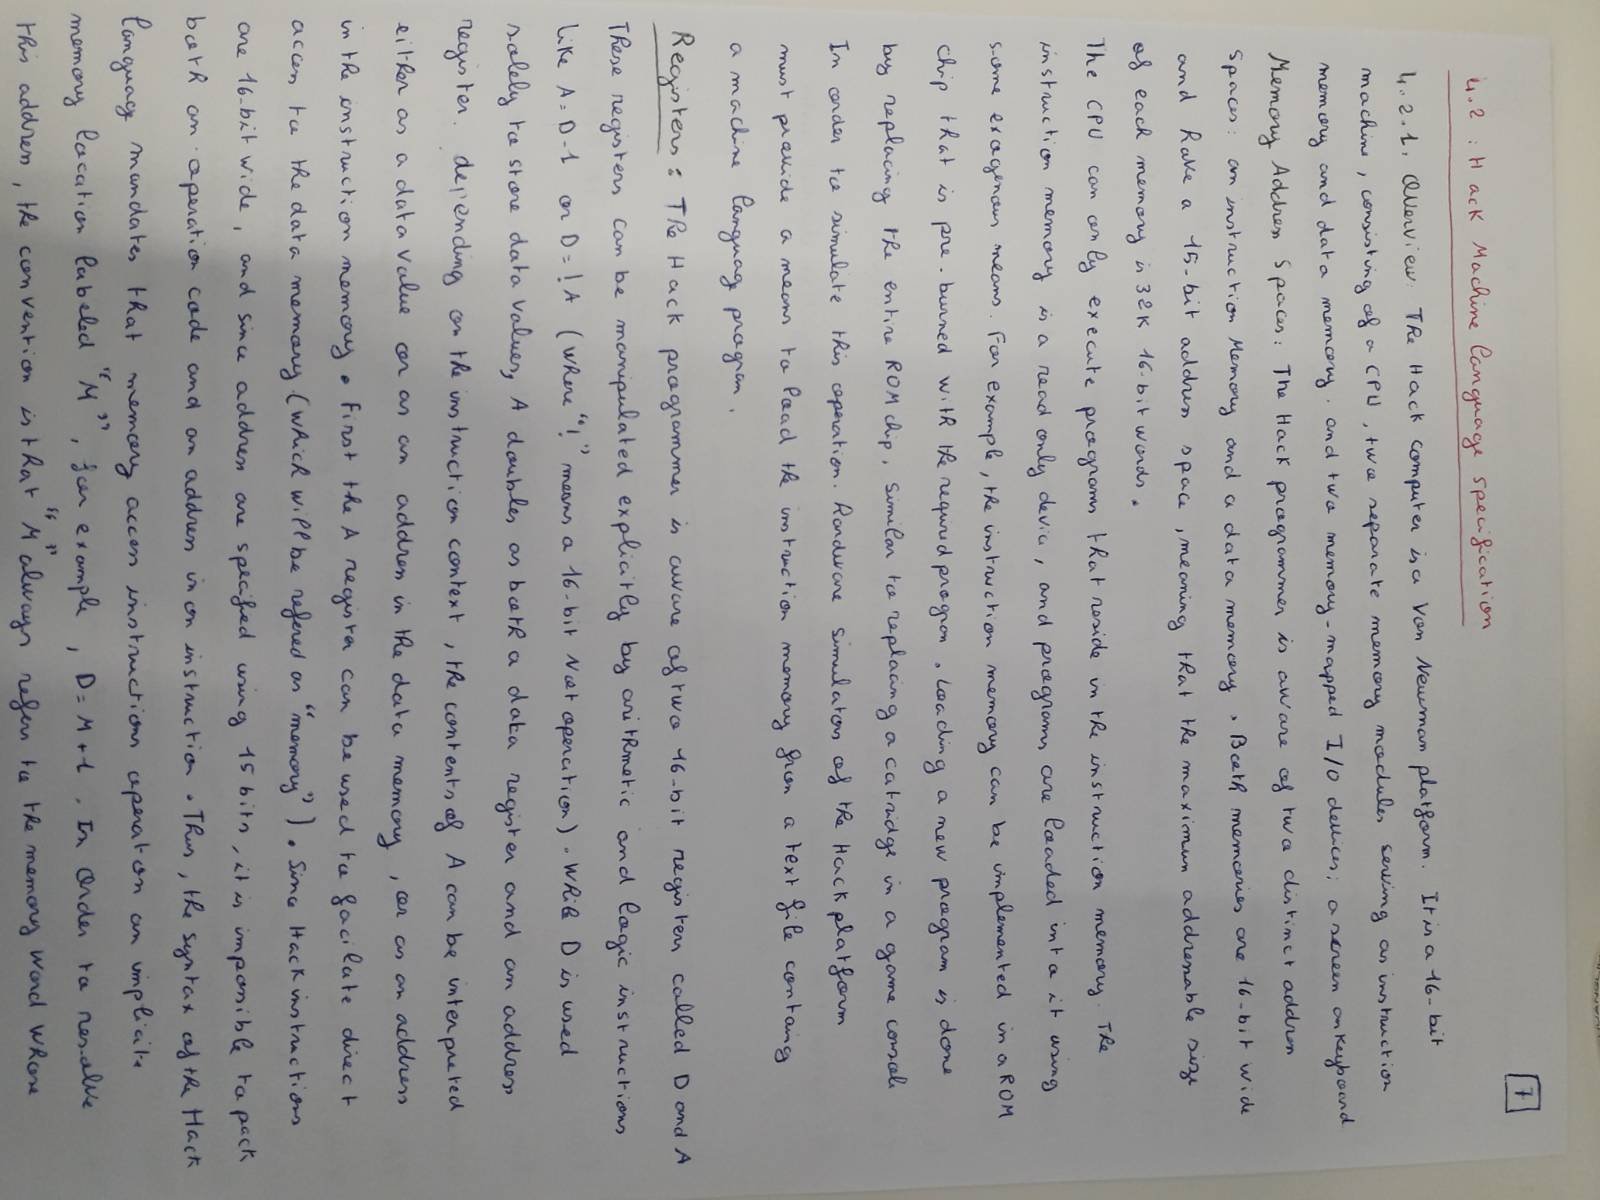 7
4.2 : Hack Machine language specification
4.2.1. Overview: The Hack computer is a Von Neuman platform. It is a 16-bit
machine, consisting of a CPU, two separate memory modules serving as instruction
memory and data memory. and two memory-mapped I/O devices; a screen on keyboard
Memory Address Spaces: The Hack programmer is aware of two distinct address
spaces: an instruction Memory and a data memory. Both memories are 16-bit wide
and have a 15-bit address space, meaning that the maximum addressable size
of each memory is 32K 16-bit words.
The CPU can only execute programs that reside in the instruction memory. The
instruction memory is a read only devic, and programs are loaded into it using
some exogenous means. For example, the instruction memory can be implemented in a ROM
chip that is pre-burned with the required program. Loading a new program is done
by replacing the entire ROM chip, similar to replacing a catridge in a game consol
In order to simulate this operation. Hardware simulators of the Hack platform
must provide a means to load the instruction memory from a text file containg
a machine language program.
Registers: The Hack programmer is aware of two 16-bit registers called D and A
These registers can be manipulated explicitly by arithmetic and logic instructions
like A=D-1 or D=!A (where "!" means a 16-bit Not operation). While D is used
solely to store data values, A doubles as both a data register and an address
register. depending on the instruction context, the contents of A can be interpreted
either as a data value or as an address in the data memory, or as an address
in the instruction memory. First the A register can be used to facilate direct
access to the data memory (which will be refered as "memory"). Since Hack instructions
are 16-bit wide, and since address are specified using 15 bits, it is impossible to pack
both an operation code and an address in on instruction. Thus, the syntax of the Hack
language mandates that memory access instructions operat on an implicite
memory location labeled "M", for example, D=M+1. In order to resolve
this address, the convention is that "M" always refers to the memory word whose